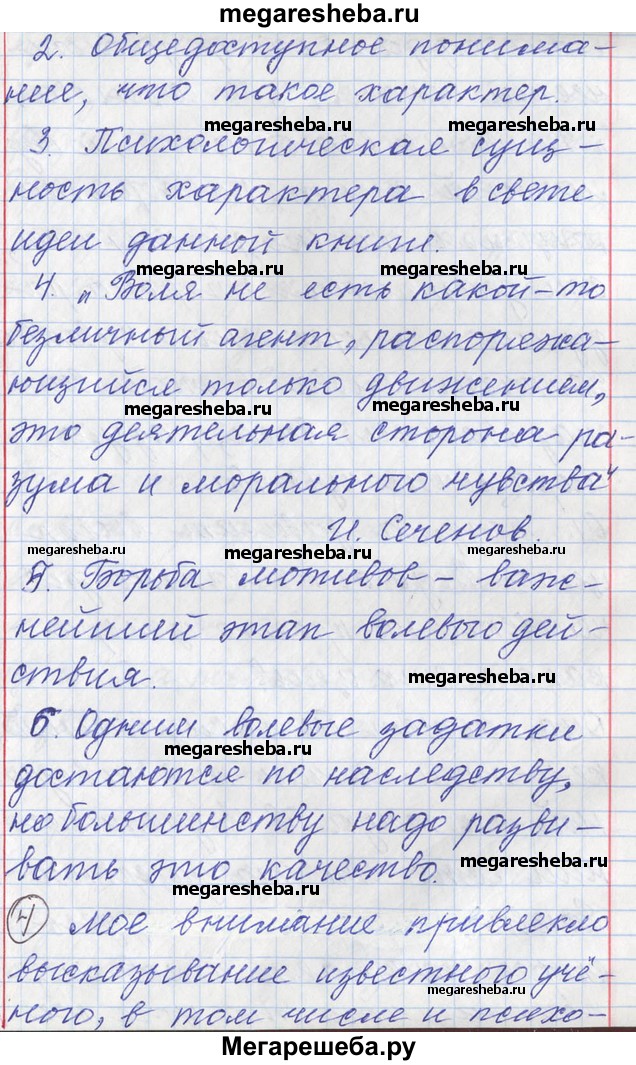 megaresheba.ru
2. Общедоступное понима-
ние, что такое характер.
megaresheba.ru megaresheba.ru
3. Психологическая сущ-
ность характера в свете
идеи данной книги.
megaresheba.ru megaresheba.ru
4. „Воля не есть какой-то
безличный агент, распоряжа-
ющийся только движением,
megaresheba.ru megaresheba.ru
это деятельная сторона ра-
зума и морального чувства"
И. Сеченов.
megaresheba.ru megaresheba.ru megaresheba.ru
5. Борьба мотивов – важ-
нейший этап волевого дей-
ствия.
megaresheba.ru
6. Одним волевые задатки
megaresheba.ru
достаются по наследству,
но большинству надо разви-
вать это качество.
megaresheba.ru megaresheba.ru
4 Мое внимание привлекло
высказывание известного учё-
megaresheba.ru
ного, в том числе и психо-
Мегарешеба.ру